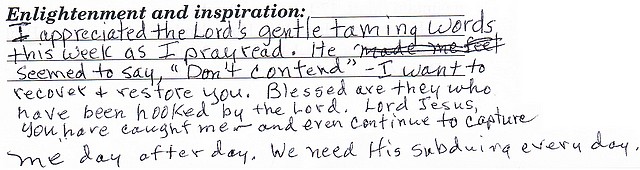 Enlightenment and inspiration:
I appreciated the Lord's gentle taming words
this week as I prayread. He made me feel
seemed to say, "Don't contend" - I want to
recover & restore you. Blessed are they who
have been hooked by the Lord. Lord Jesus,
You have caught me - and even continue to capture
me day after day. We need His subduing every day.